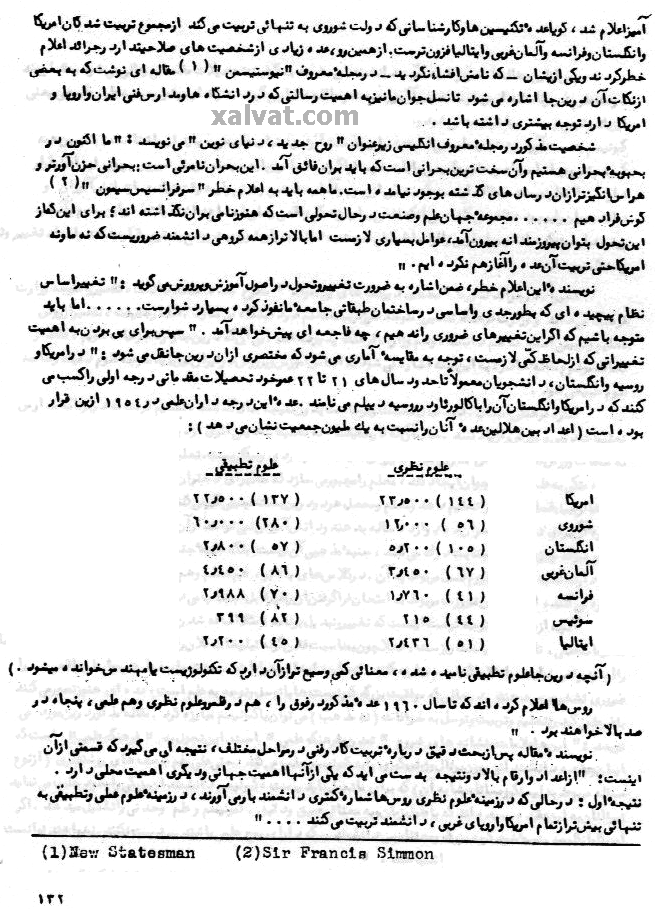 آمیزاعلام شد ، گویاعده‌ٔ تکنیسین هاوکارشناسانی که دولت شوروی به تنهائی تربیت می کند ازمجموع تربیت شدگان امریکا
وانگلستان وفرانسه وآلمان غربی وایتالیا فزون تراست. ازهمین رو،عده زیادی ازشخصیت های صلاحیتدار درجرائد اعلام
خطرکردند ویکی ازیشان ــ که نامش افشاءنگردید ــ درمجله‌ٔ معروف "نیوستیتسمن" (١) مقاله ای نوشت که به بعضی
ازنکات آن درین جا اشاره می شود تانسل جوان مانیزبه اهمیت رسالتی که دردانشگاه هاومدارس فنی ایران واروپا و
xalvat.com
امریکا دارد توجه بیشتری داشته باشد .
شخصیت مذکوردرمجله‌ٔ معروف انگلیسی زیرعنوان " روح جدید ، دنیای نوین " می نویسد : " ما اکنون در
بحبوبه‌ٔ بحرانی هستیم وآن سخت ترین بحرانی است که باید برآن فائق آمد . این بحران نامرئی است : بحرانی حزن آورتر و
هراس انگیزترازآن درسال های گذشته بوجود نیامده است. ماهمه باید به اعلام خطر " سرفرانسیس سیمون "(٢)
گوش فرادهیم ...... مجموعه‌ٔ جهان علم وصنعت درحال تحولی است که هنوزنامی برآن نگذاشته اند ؛ برای این کهاز
این تحول بتوان پیروزمندانه بیرون آمد،عوامل بسیاری لازمست اما بالاترازهمه گروهی دانشمند ضروریست که نه ماونه
امریکاحتی تربیت آن عده راآغازهم نکرده ایم . "
نویسنده‌ٔ این اعلام خطر، ضمن اشاره به ضرورت تغییروتحول دراصول آموزش وپرورش می گوید : " تغییراساس
نظام پیچیده ای که بطورجدی واساسی درساختمان طبقاتی جامعه‌ٔ مانفوذ کرده بسیاردشوارست......اما باید
متوجه باشیم که اگراین تغییرهای ضروری رانه هیم ، چه فاجعه ای پیش خواهدآمد . " سپس برای پی بردن به اهمیت
تغییراتی که ازلحاظ کمّی لازمست ، توجه به مقایسه‌ٔ آماری می شود که مختصری ازآن درین جانقل می شود : " درامریکاو
روسیه وانگلستان ، دانشجویان معمولاً تاحدود سال های ٢١ تا ٢٢ عمرخود تحصیلات مقدماتی درجه اولی راکسب می
کنند که درامریکاوانگلستان آن راباکالورئا ودرروسیه دیپلم می نامند .عده‌ٔ این درجه داران علمی در١٩٥٤ ازین قرار
بوده است (اعداد بین هلالین عده‌ٔ آنان رانسبت به یك ملیون جمعیت نشان می دهد ) :
علوم نظری علوم تطبیقی
امریکا ٢٣٫٥٠٠ (١٤٤) ٢٢٫٥٠٠ (١٣٧)
شوروی ١٢٫٠٠٠ (٥٦) ٦٠٫٠٠٠ (٢٨٠)
انگلستان ٥٫٢٠٠ (١٠٥) ٢٫٨٠٠ (٥٧)
آلمان غربی ٣٫٤٥٠ (٦٧) ٤٫٤٥٠ (٨٦)
فرانسه ١٫٧٦٠ (٤١) ٢٫٩٨٨ (٧٠)
سوئیس ٢١٥ (٤٤) ٣٩٩ (٨٢)
ایتالیا ٢٫٤٣٦ (٥١) ٢٫٢٠٠ (٤٥)
( آنچه درین جاعلوم تطبیقی نامیده شده ، معنائی کمی وسیع ترازآن دارد که تکنولوژیست یامهندس خوانده میشود .)
روس ها اعلام کرده اند که تا سال ١٩٦٠ عده‌ٔ مذکوردرفوق را ، هم درقلمروعلوم نظری وهم علمی ، پنجاه در
صد بالاخواهند برد . "
نویسنده‌ٔ مقاله پس ازبحث دقیق درباره‌ٔ تربیت کادرفنی درمراحل مختلف ، نتیجه ای می گیرد که قسمتی ازآن
اینست : "ازاعداد وارقام بالا دونتیجه به دست می آید که یکی ازآنها اهمیت جهانی ودیگری اهمیت محلی دارد .
نتیجه‌ٔ اول : درحالی که درزمینه‌ٔ علوم نظری روس ها شماره‌ٔ کمتری دانشمند بارمی آورند ، درزمینه‌ٔ علوم عملی وتطبیقی به
تنهائی بیش ترازتمام امریکاواروپای غربی ، دانشمند تربیت می کنند .... "
(1)New Statesman (2)Sir Francis Simmon
١٣٢